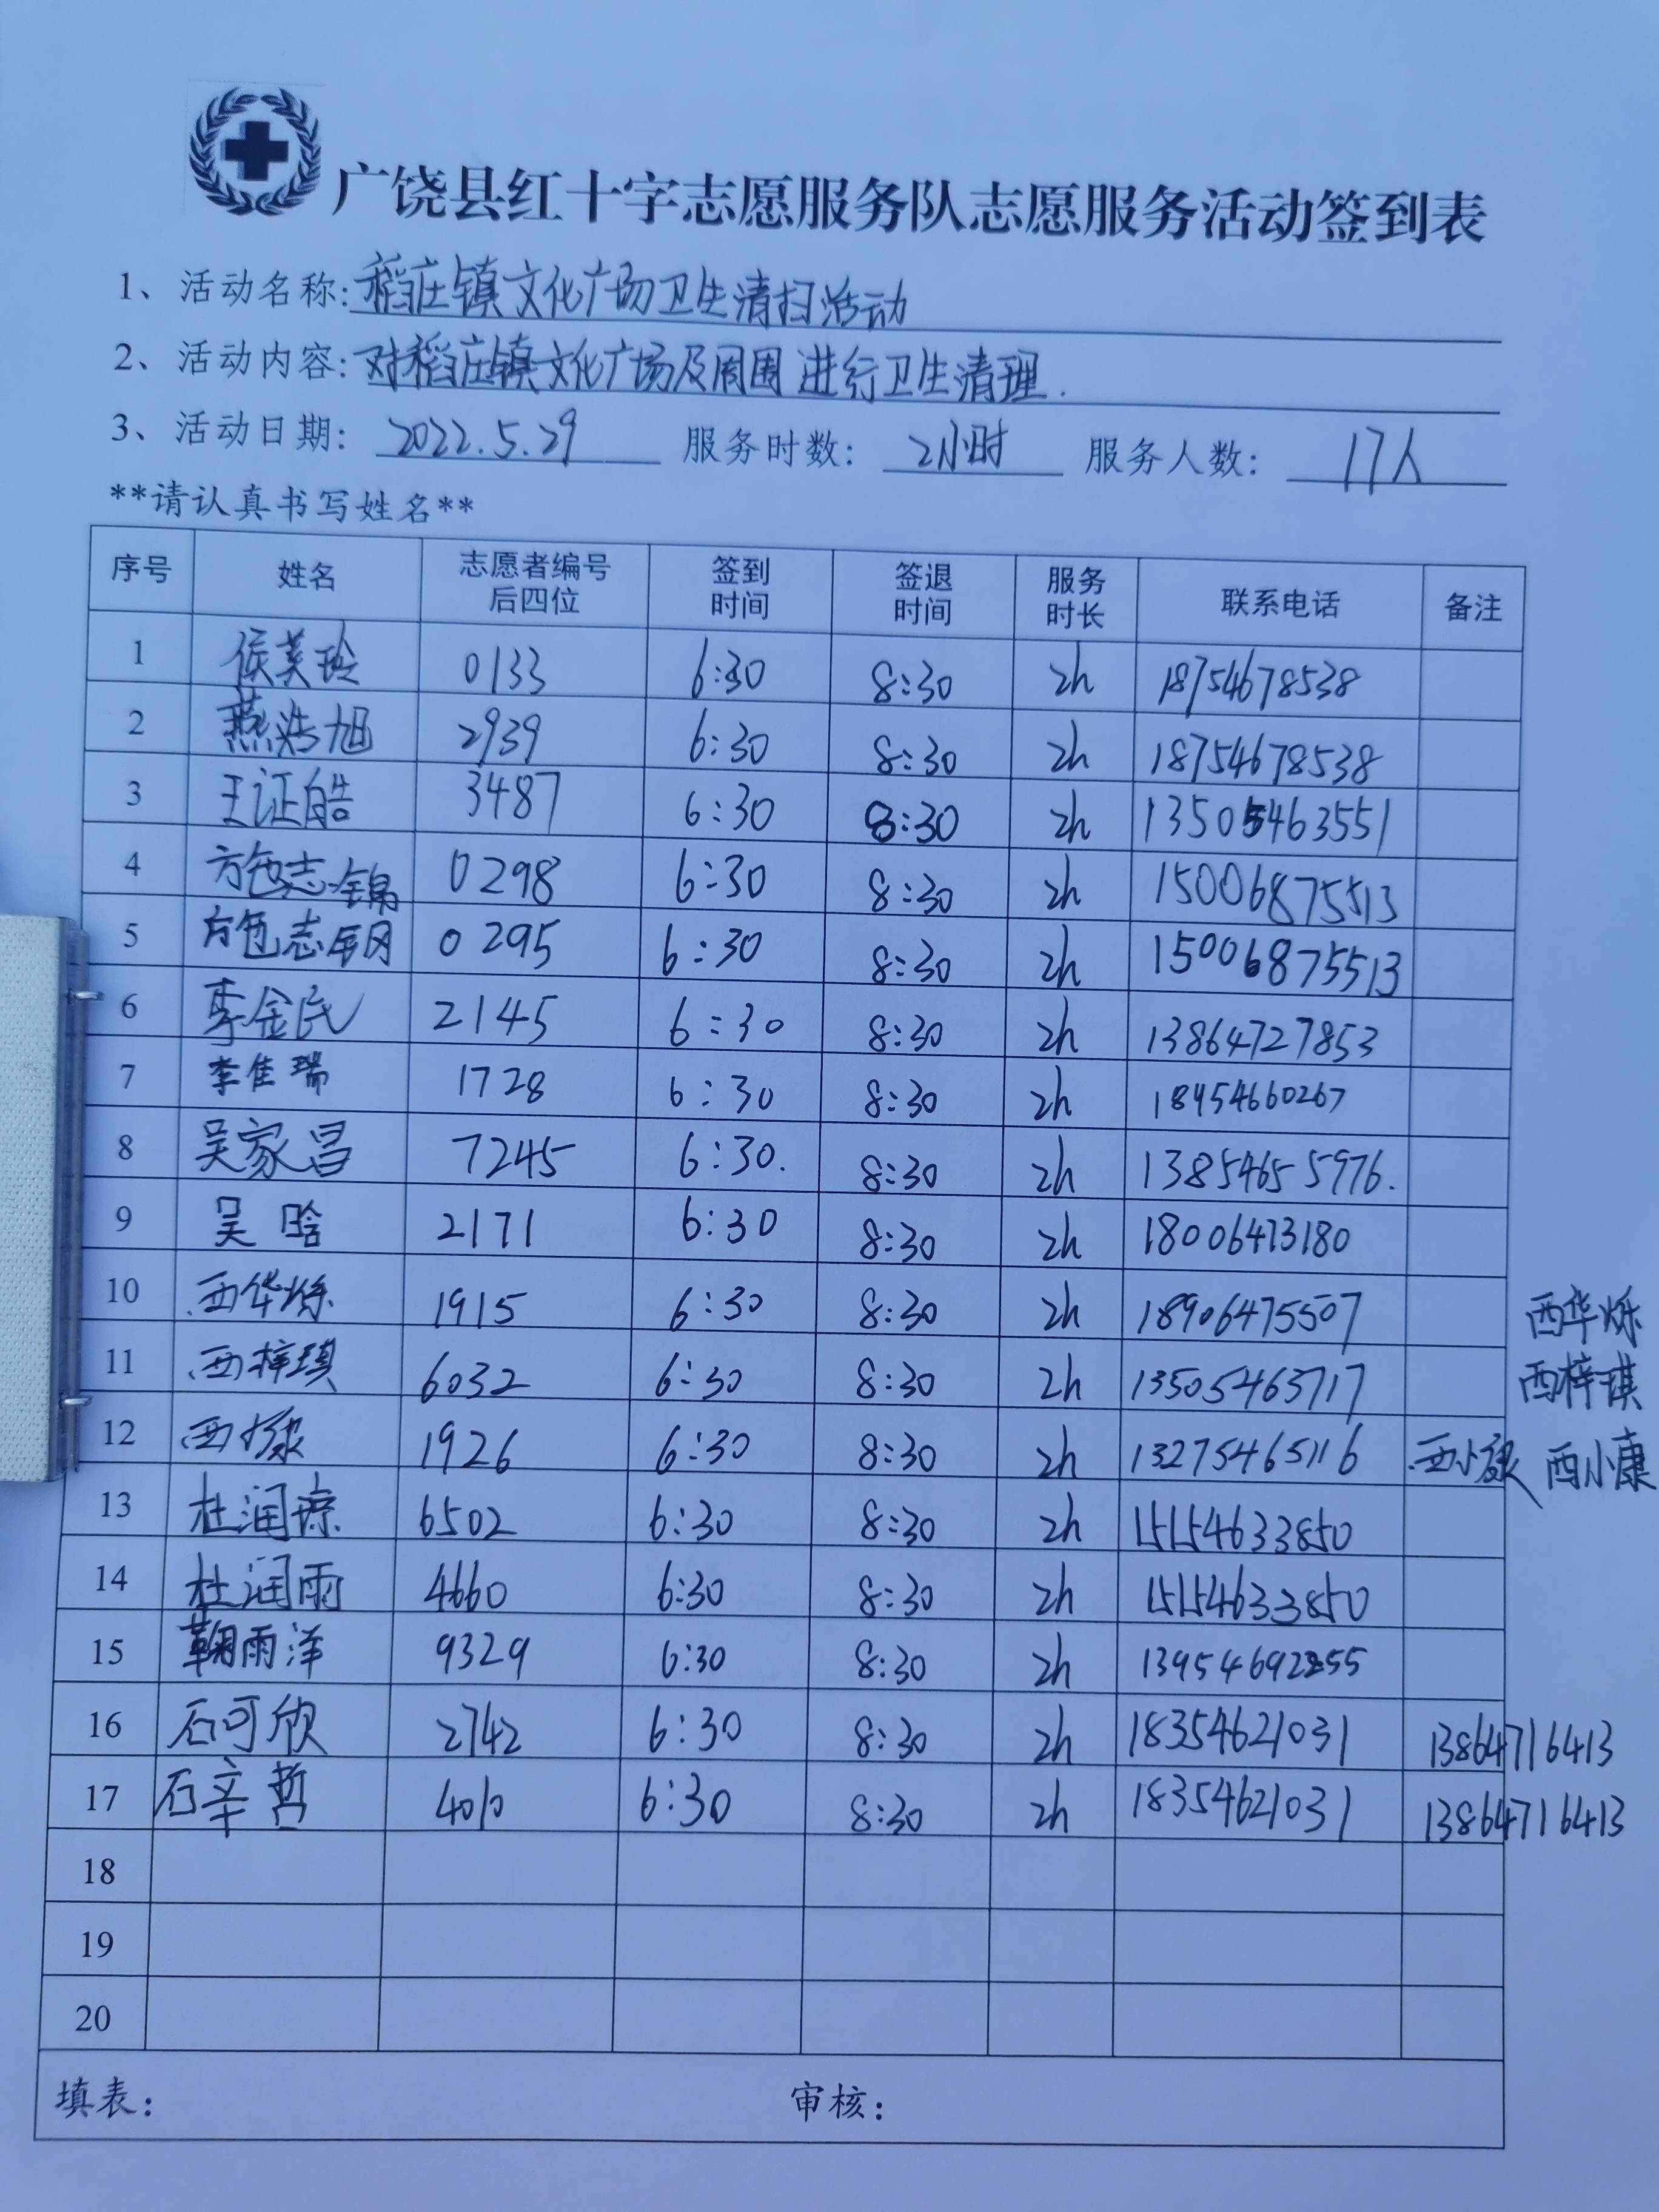 广饶县红十字志愿服务队志愿服务活动签到表
1、活动名称:稻庄镇文化广场卫生清扫活动
2、活动内容:对稻庄镇文化广场及周围进行卫生清理.
3、活动日期: 2022.5.29 服务时数: 2小时 服务人数: 17人
**请认真书写姓名**
序号 姓名 志愿者编号后四位 签到时间 签退时间 服务时长 联系电话 备注
1 侯美玲 0133 6:30 8:30 2h 18754678538
2 燕浩旭 2939 6:30 8:30 2h 18754678538
3 王证皓 3487 6:30 8:30 2h 13505463551
4 志锦 0298 6:30 8:30 2h 15006875513
5 志钢 0295 6:30 8:30 2h 15006875513
6 李金民 2145 6:30 8:30 2h 13864727853
7 李佳瑞 1728 6:30 8:30 2h 18454660267
8 吴家昌 7245 6:30. 8:30 2h 13854655976.
9 吴晗 2171 6:30 8:30 2h 18006473180
10 西华烁 1915 6:30 8:30 2h 18906475507 西华烁
11 西梓琪 6032 6:30 8:30 2h 13505463717 西梓琪
12 西小康 1926 6:30 8:30 2h 13275465116 西小康 西小康
13 杜润琼 6502 6:30 8:30 2h 15154633850
14 杜润雨 4660 6:30 8:30 2h 15154633850
15 鞠雨泽 9329 6:30 8:30 2h 13954692255
16 石可欣 2742 6:30 8:30 2h 18354621031 13864716413
17 石辛哲 4010 6:30 8:30 2h 18354621031 13864716413
18
19
20
填表: 审核: